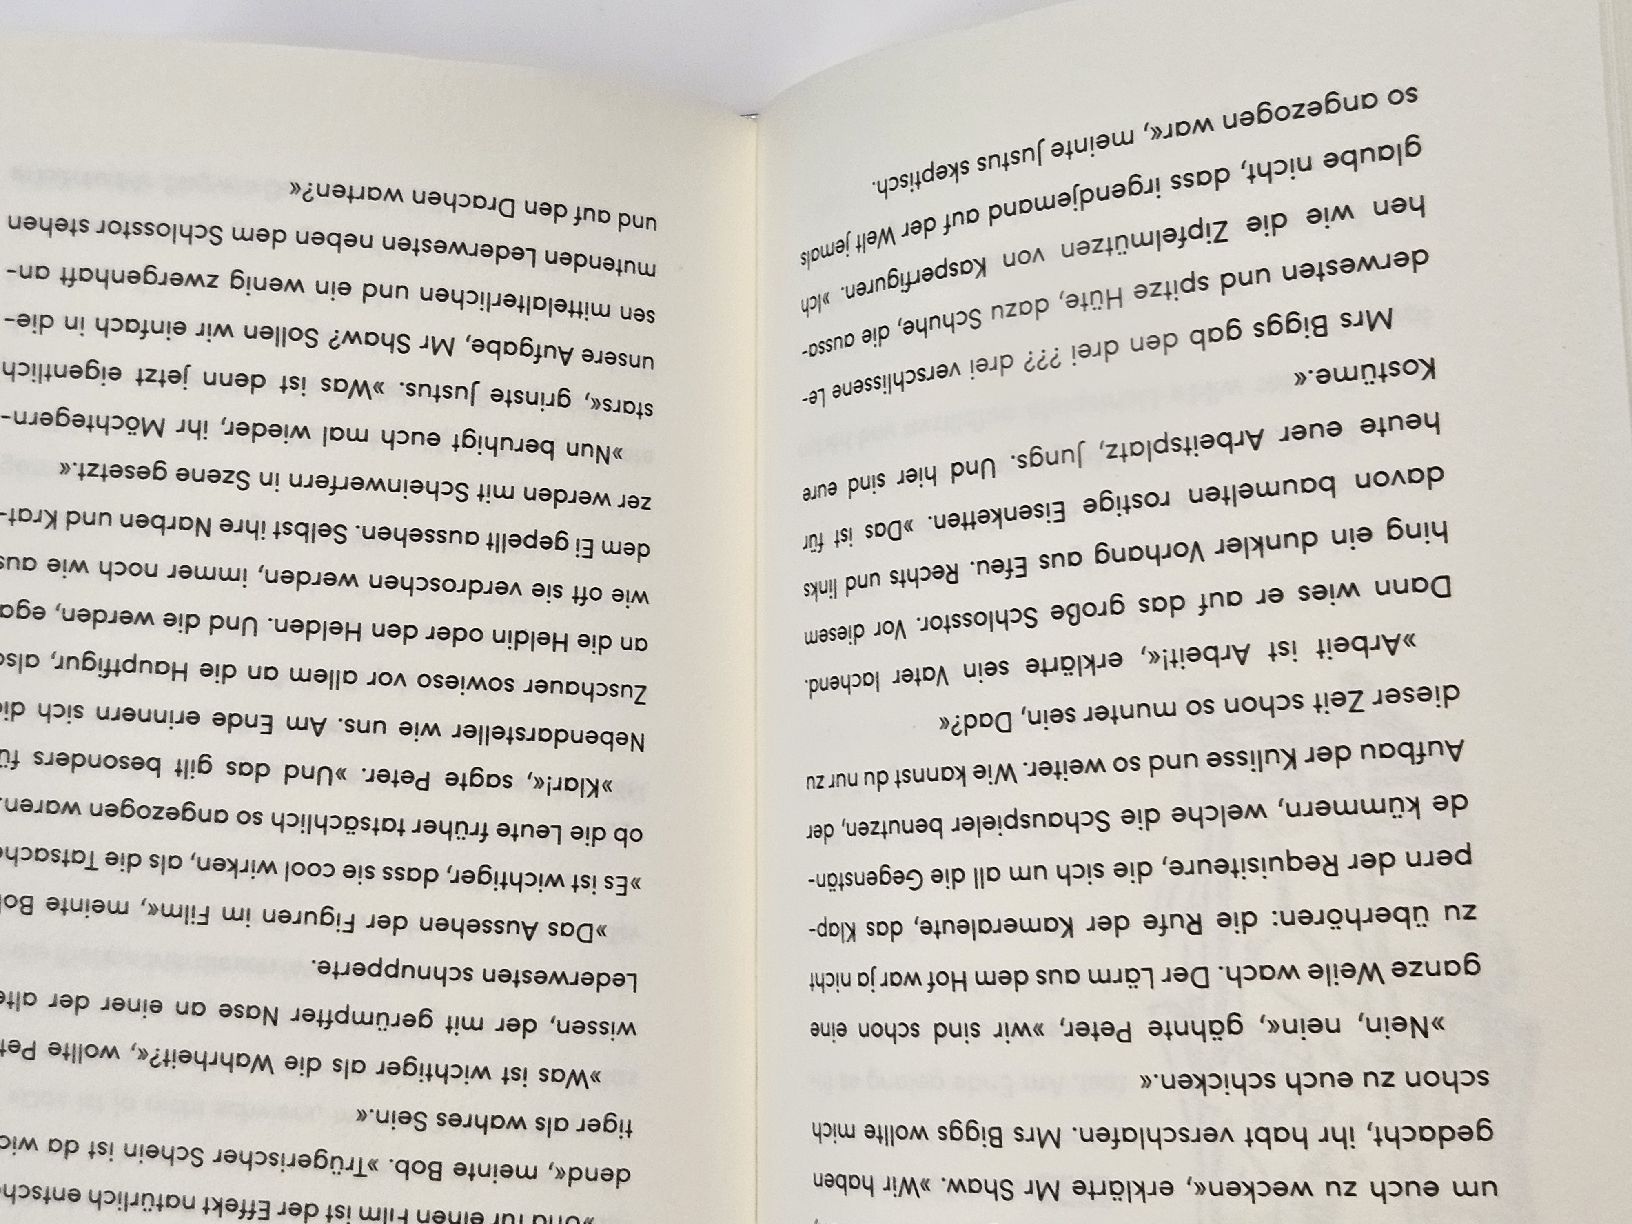 um euch zu wecken«, erklärte Mr Shaw. »Wir haben
gedacht, ihr habt verschlafen. Mrs Biggs wollte mich
schon zu euch schicken.«
»Nein, nein«, gähnte Peter, »wir sind schon eine
ganze Weile wach. Der Lärm aus dem Hof war ja nicht
zu überhören: die Rufe der Kameraleute, das Klap-
pern der Requisiteure, die sich um all die Gegenstän-
de kümmern, welche die Schauspieler benutzen, der
Aufbau der Kulisse und so weiter. Wie kannst du nur zu
dieser Zeit schon so munter sein, Dad?«
»Arbeit ist Arbeit!«, erklärte sein Vater lachend.
Dann wies er auf das große Schlosstor. Vor diesem
hing ein dunkler Vorhang aus Efeu. Rechts und links
davon baumelten rostige Eisenketten. »Das ist für
heute euer Arbeitsplatz, Jungs. Und hier sind eure
Kostüme.«
Mrs Biggs gab den drei ??? drei verschlissene Le-
derwesten und spitze Hüte, dazu Schuhe, die aussa-
hen wie die Zipfelmützen von Kasperfiguren. »Ich
glaube nicht, dass irgendjemand auf der Welt jemals
so angezogen war«, meinte Justus skeptisch.
»Und für einen Film ist der Effekt natürlich entsche
dend«, meinte Bob. »Trügerischer Schein ist da wic
tiger als wahres Sein.«
»Was ist wichtiger als die Wahrheit?«, wollte Pet
wissen, der mit gerümpfter Nase an einer der alte
Lederwesten schnupperte.
»Das Aussehen der Figuren im Film«, meinte Bob
»Es ist wichtiger, dass sie cool wirken, als die Tatsache
ob die Leute früher tatsächlich so angezogen waren.
»Klar!«, sagte Peter. »Und das gilt besonders fü
Nebendarsteller wie uns. Am Ende erinnern sich die
Zuschauer sowieso vor allem an die Hauptfigur, also
an die Heldin oder den Helden. Und die werden, ega
wie oft sie verdroschen werden, immer noch wie aus
dem Ei gepellt aussehen. Selbst ihre Narben und Krat-
zer werden mit Scheinwerfern in Szene gesetzt.«
»Nun beruhigt euch mal wieder, ihr Möchtegern-
stars«, grinste Justus. »Was ist denn jetzt eigentlich
unsere Aufgabe, Mr Shaw? Sollen wir einfach in die-
sen mittelalterlichen und ein wenig zwergenhaft an-
mutenden Lederwesten neben dem Schlosstor stehen
und auf den Drachen warten?«